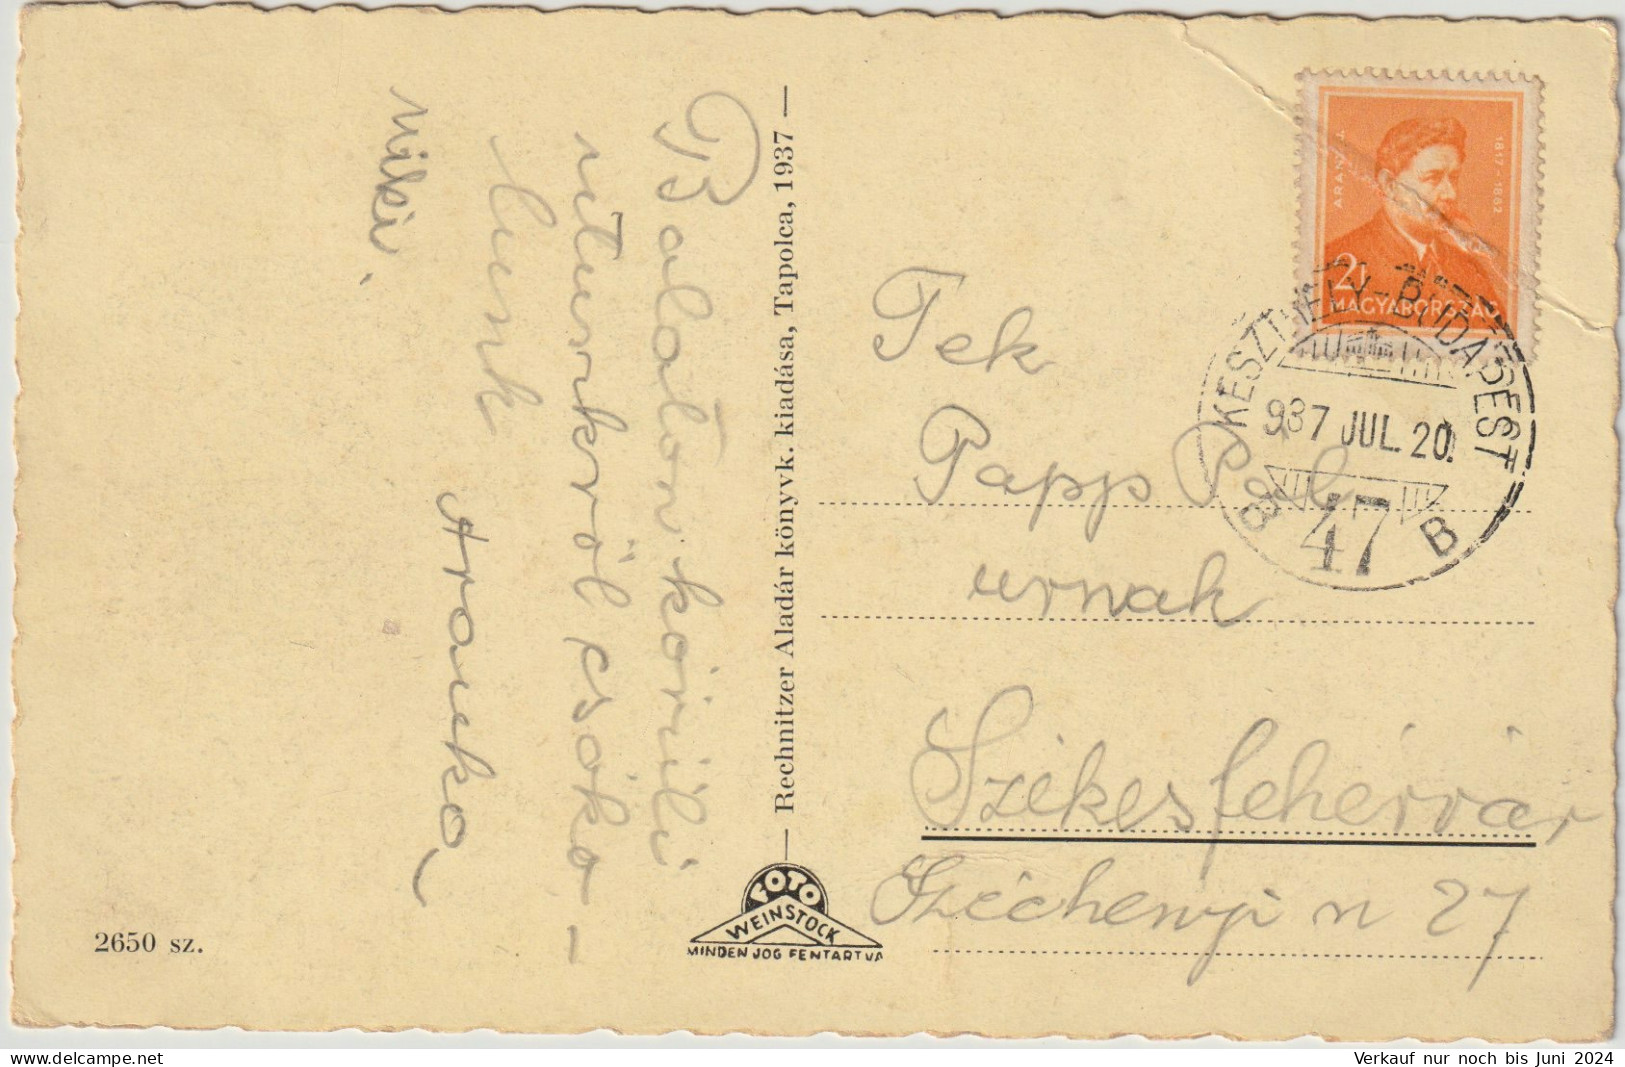 Balaton körüli
utunkról csóko-
lunk
Miki
Aranka
— Rechnitzer Aladár könyvk. kiadása, Tapolca, 1937 —
FOTO
WEINSTOCK
MINDEN JOG FENTARTVA
2650 sz.
ARANY J.
1817-1882
2
MAGYARORSZÁG
KESZTHELY-BUDAPEST
937 JUL. 20.
47
B
Tek
Papp Pál
urnak
Székesfehérvár
Széchenyi u 27
www.delcampe.net
Verkauf nur noch bis Juni 2024